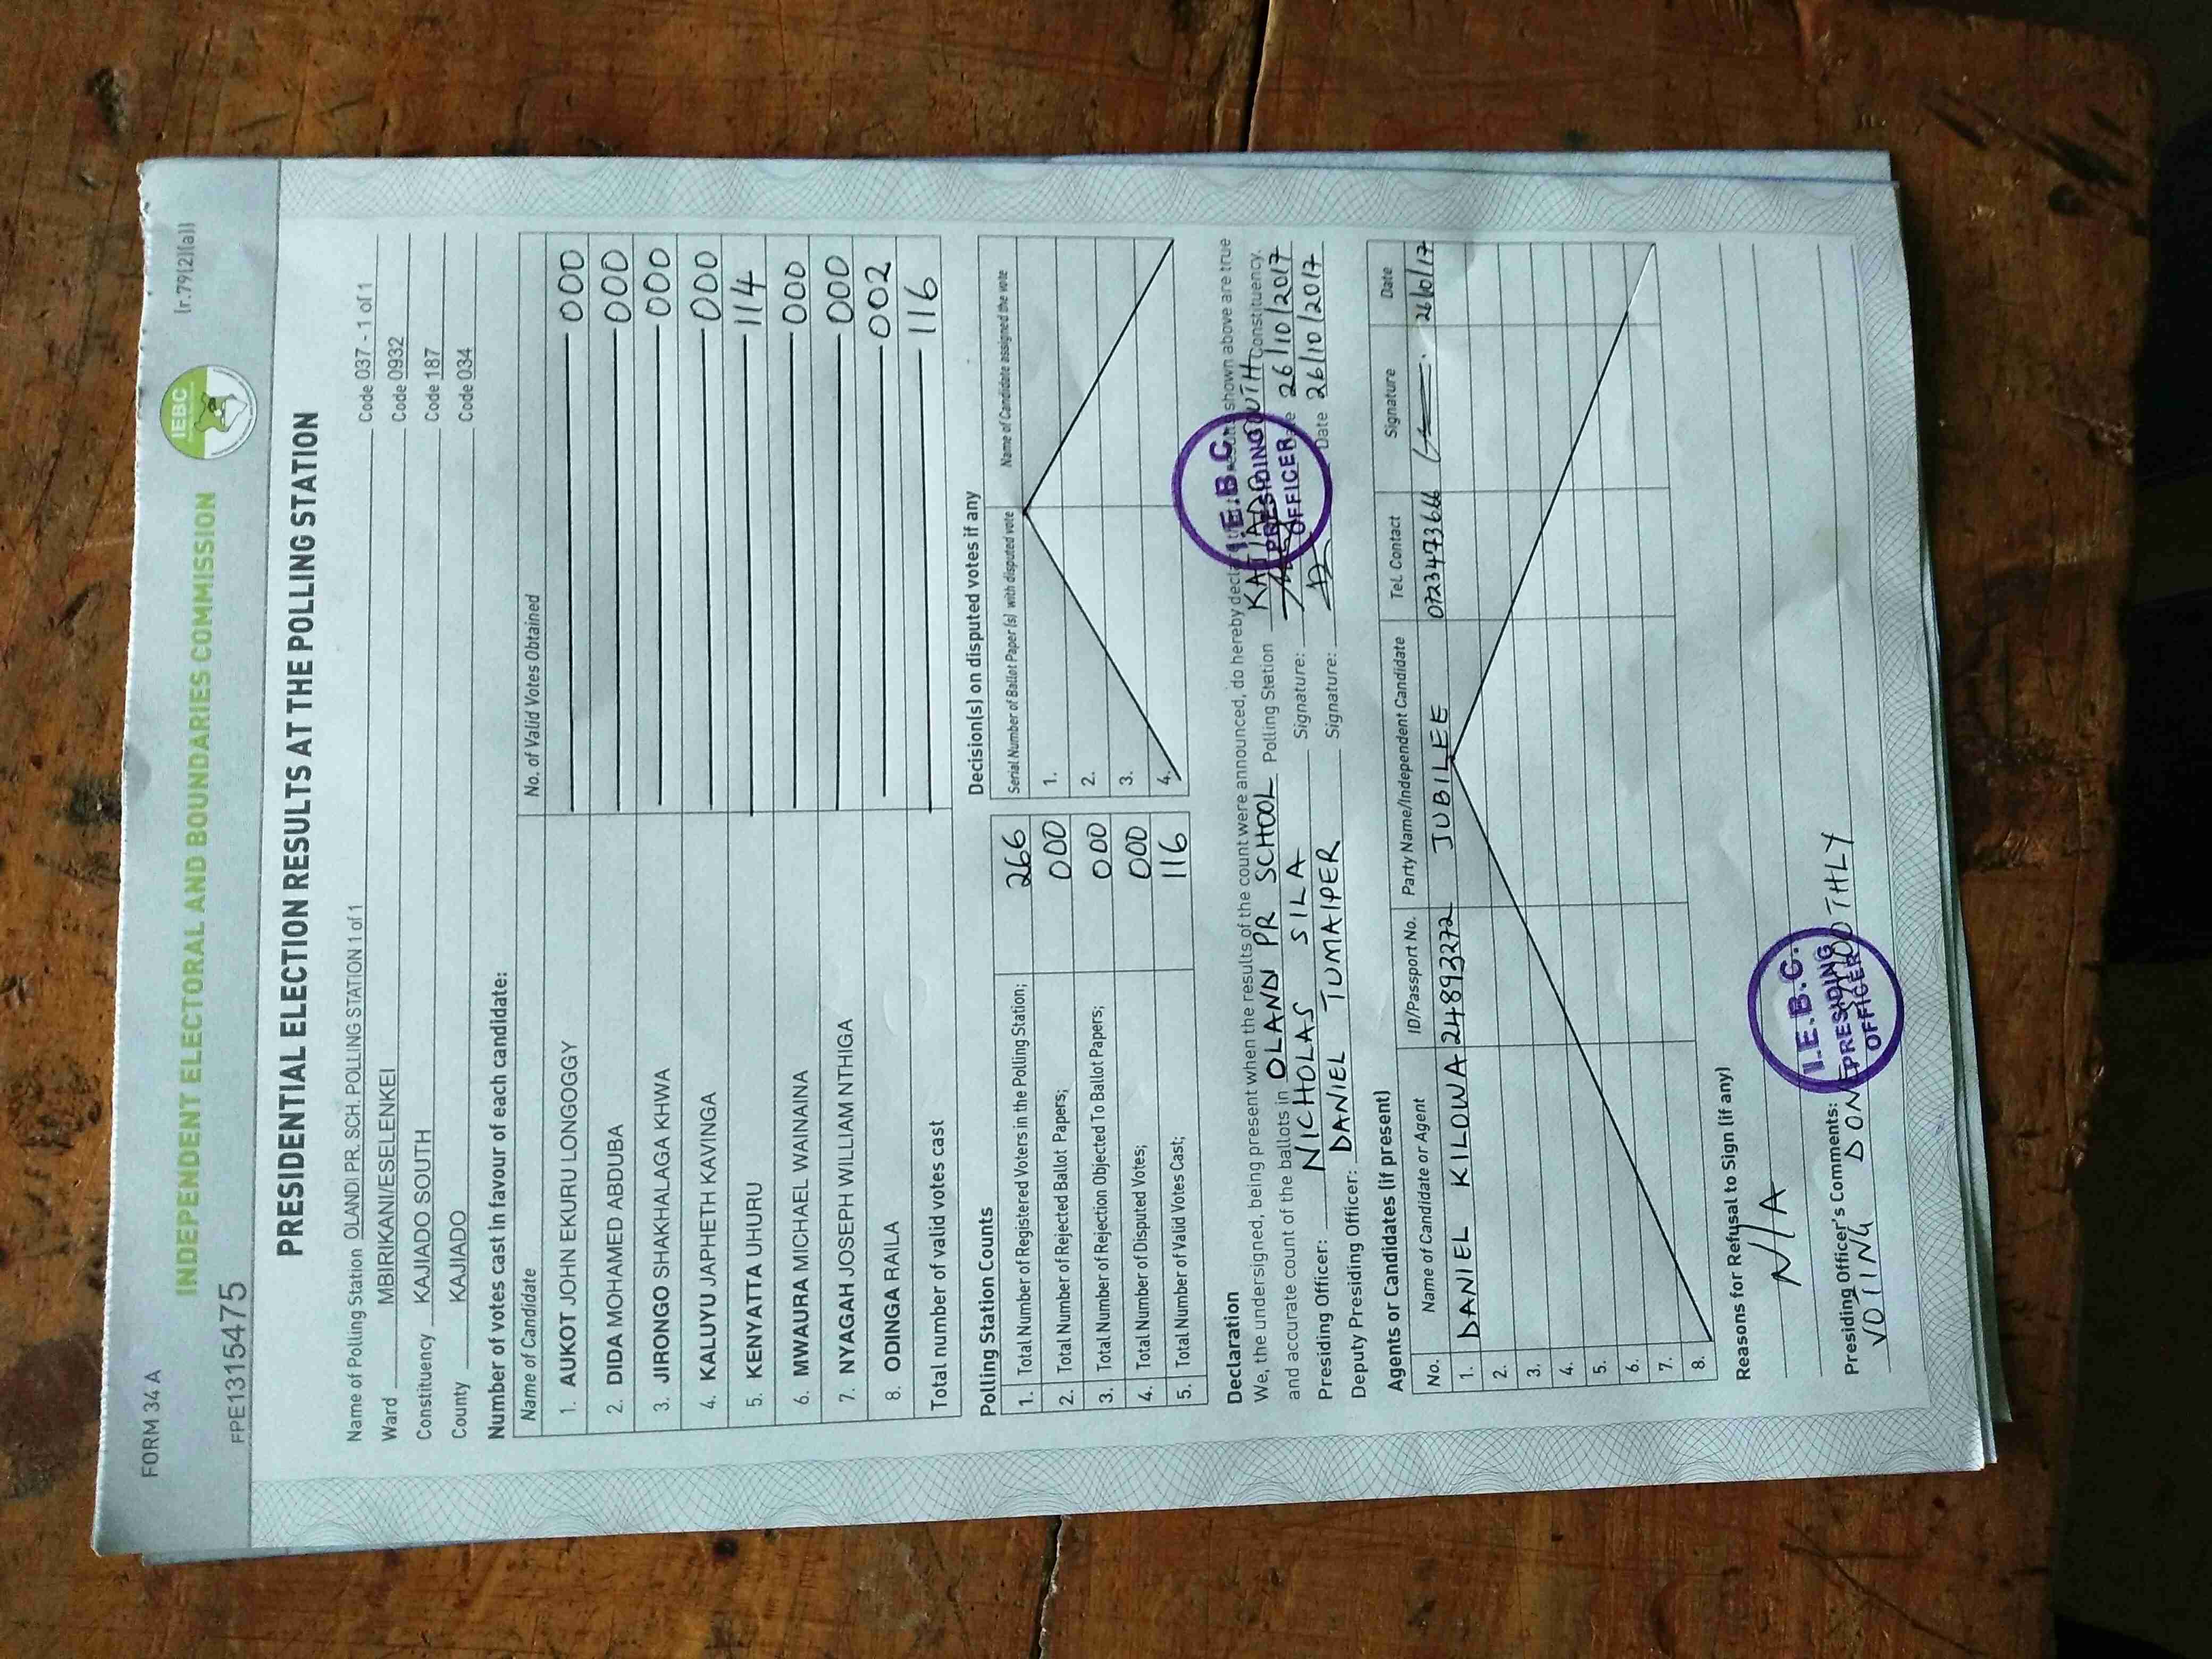 FORM 34 A
[r.79(2)(a)]
IEBC
INDEPENDENT ELECTORAL AND BOUNDARIES COMMISSION
FPE1315475
PRESIDENTIAL ELECTION RESULTS AT THE POLLING STATION
Name of Polling Station OLANDI PR. SCH. POLLING STATION 1 of 1 Code 037 - 1 of 1
Ward MBIRIKANI/ESELENKEI Code 0932
Constituency KAJIADO SOUTH Code 187
County KAJIADO Code 034
Number of votes cast in favour of each candidate:
Name of Candidate No. of Valid Votes Obtained
1. AUKOT JOHN EKURU LONGOGGY 000
2. DIDA MOHAMED ABDUBA 000
3. JIRONGO SHAKHALAGA KHWA 000
4. KALUYU JAPHETH KAVINGA 000
5. KENYATTA UHURU 114
6. MWAURA MICHAEL WAINAINA 000
7. NYAGAH JOSEPH WILLIAM NTHIGA 000
8. ODINGA RAILA 002
Total number of valid votes cast 116
Polling Station Counts
1. Total Number of Registered Voters in the Polling Station; 266
2. Total Number of Rejected Ballot Papers; 000
3. Total Number of Rejection Objected To Ballot Papers; 000
4. Total Number of Disputed Votes; 000
5. Total Number of Valid Votes Cast; 116
Decision(s) on disputed votes if any
Serial Number of Ballot Paper (s) with disputed vote Name of Candidate assigned the vote
1.
2.
3.
4.
Declaration
We, the undersigned, being present when the results of the count were announced, do hereby declare shown above are true
and accurate count of the ballots in OLAND PR SCHOOL Polling Station KAJIADO SOUTH Constituency.
Presiding Officer: NICHOLAS SILA Signature: Date 26/10/2017
Deputy Presiding Officer: DANIEL TUMAIPER Signature: Date 26/10/2017
I.E.B.C.
PRESIDING
OFFICER
Agents or Candidates (if present)
No. Name of Candidate or Agent ID/Passport No. Party Name/Independent Candidate Tel. Contact Signature Date
1. DANIEL KILOWA 24893272 JUBILEE 0723473666 26/10/17
2.
3.
4.
5.
6.
7.
8.
Reasons for Refusal to Sign (if any)
N/A
Presiding Officer's Comments:
VOTING DONE SMOOTHLY
I.E.B.C.
PRESIDING
OFFICER